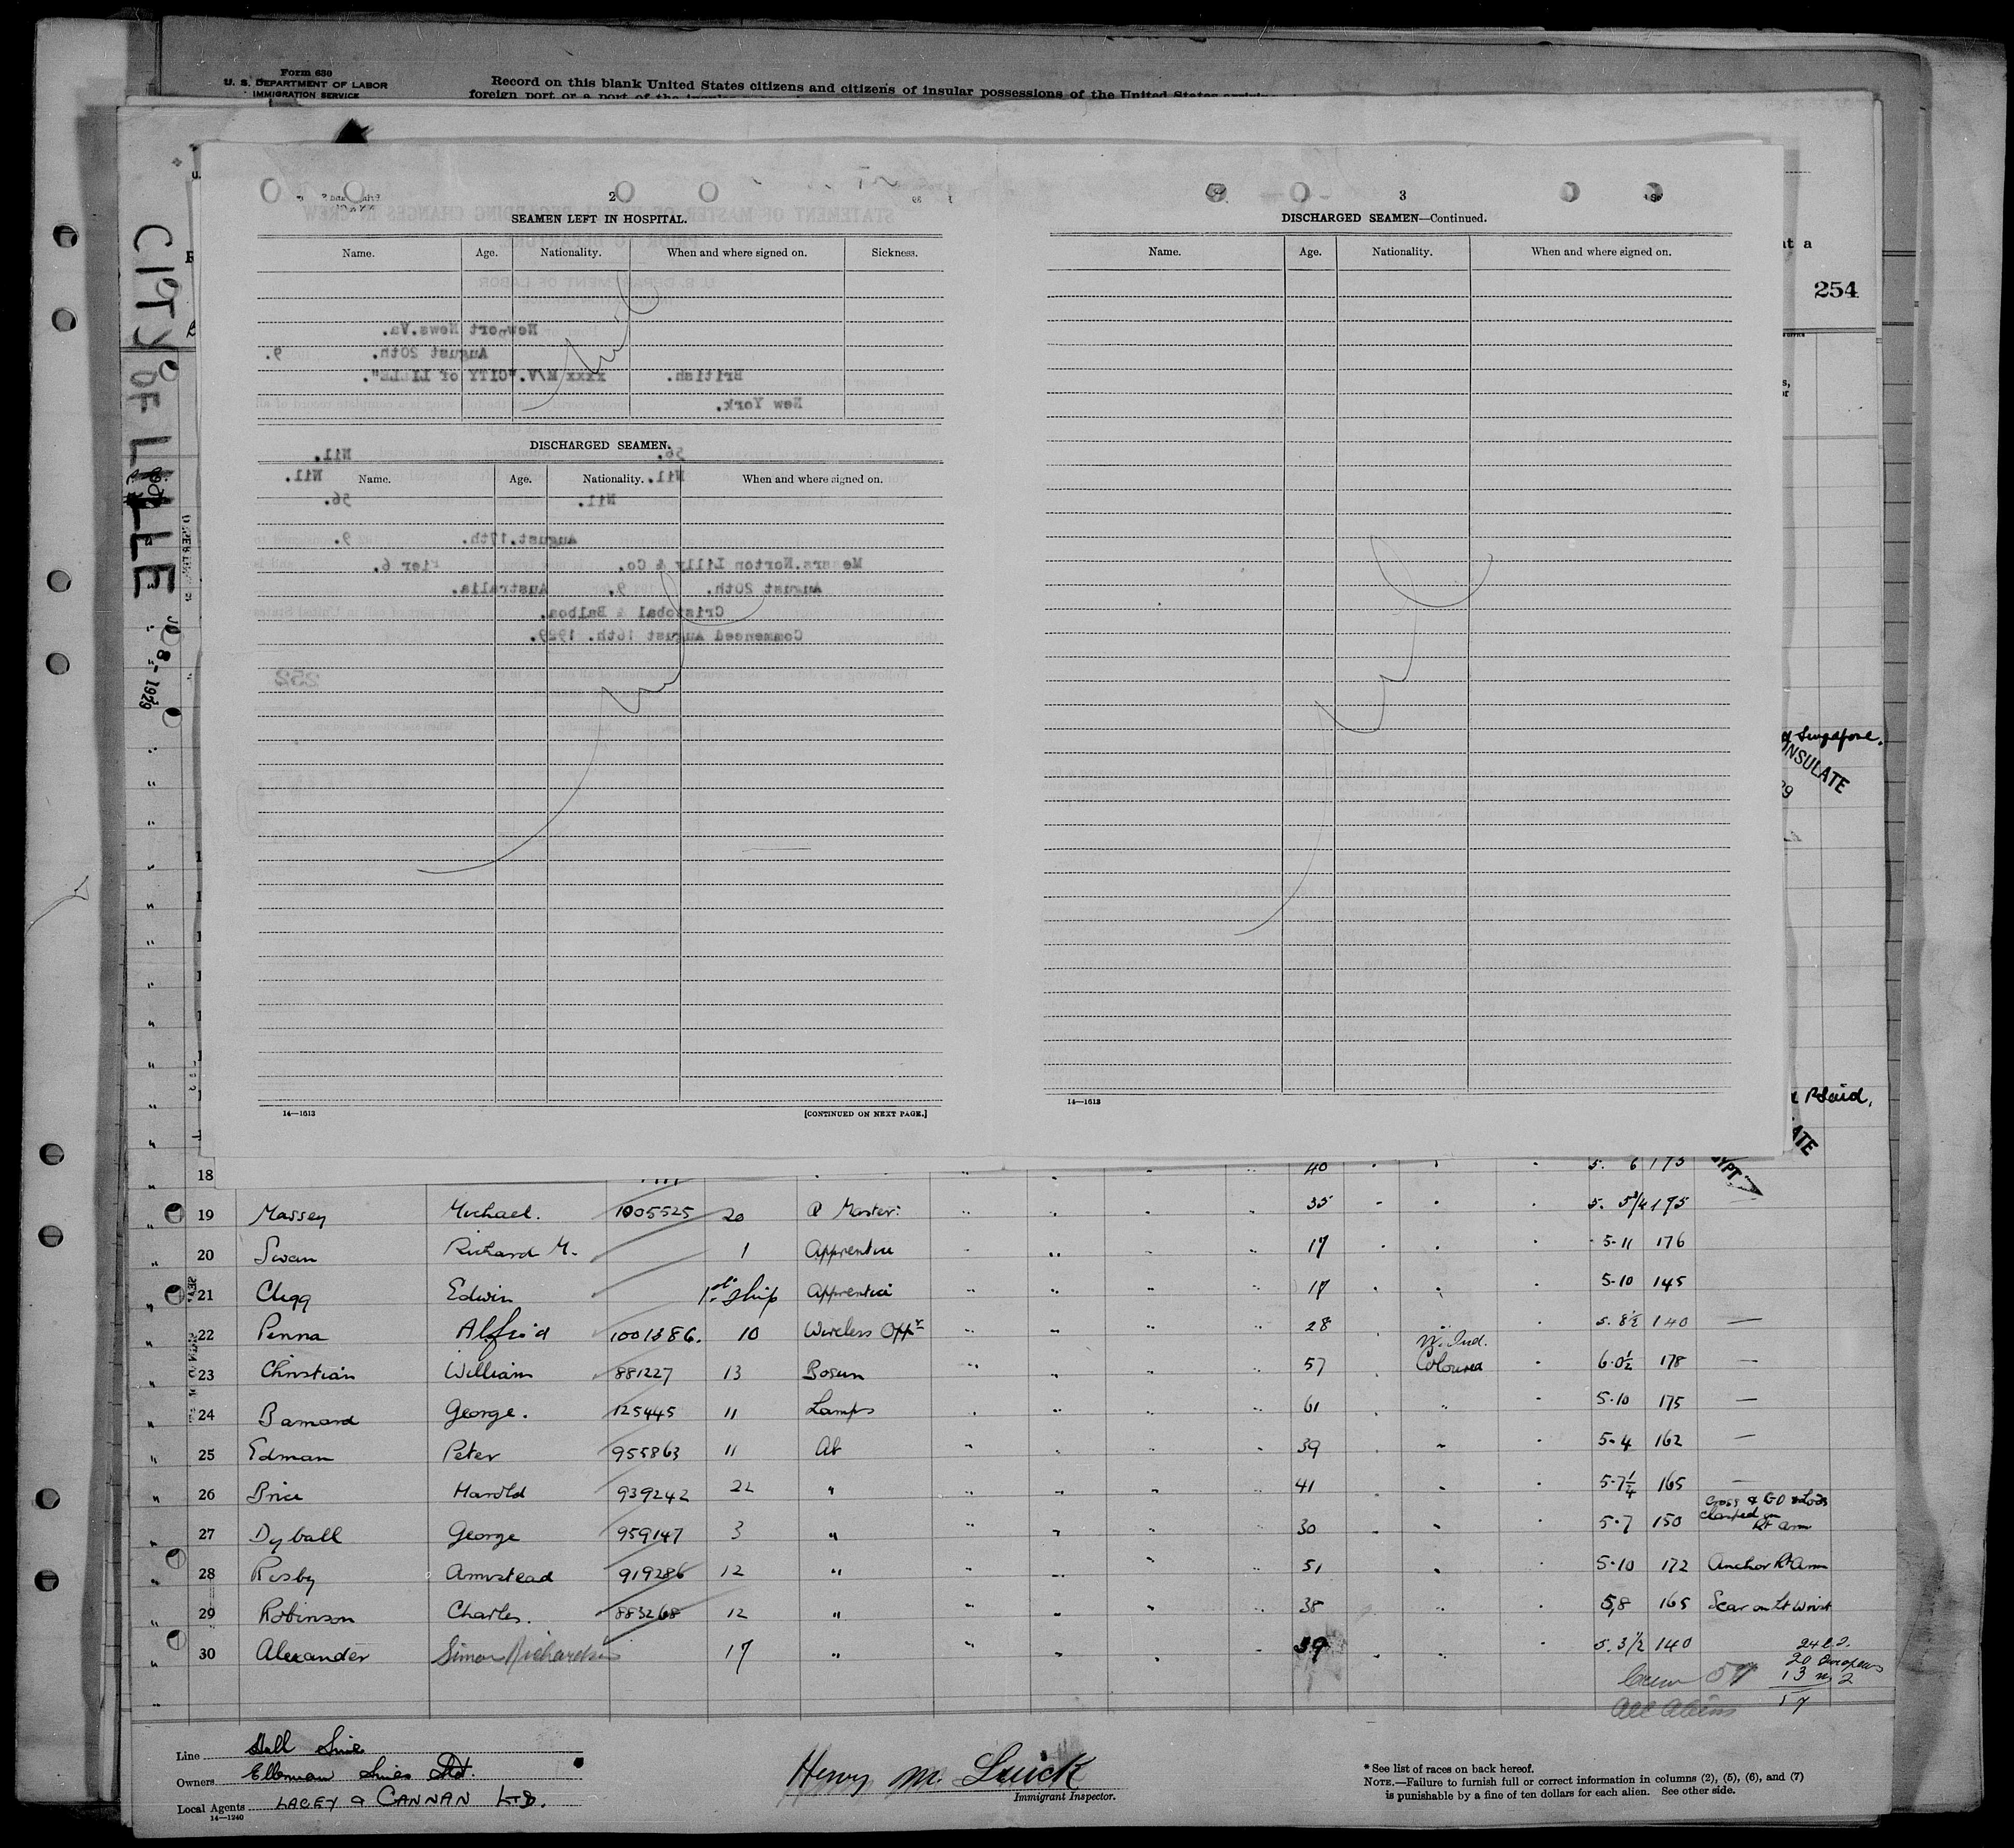 Form 630
U. S. DEPARTMENT OF LABOR
IMMIGRATION SERVICE
Record on this blank United States citizens and citizens of insular possessions of the United States arriving
foreign port or a port of the insular
CITY OF LILLE
8- 1929
254
at a
2
SEAMEN LEFT IN HOSPITAL.
Name. Age. Nationality. When and where signed on. Sickness.
nil
Newport News.Va.
August 20th. 9.
British. xxxx M/V."CITY of LILLE".
New York.
DISCHARGED SEAMEN.
56. Nil.
Name. Age. Nationality. When and where signed on.
Nil. Nil.
Nil. 56.
August.17th. 9.
Messrs.Norton Lilly & Co. Pier 6.
August 20th. 9. Australia.
Cristobal & Balboa.
Commenced August 16th. 1929.
252
nil
14—1613 [CONTINUED ON NEXT PAGE.]
3
DISCHARGED SEAMEN—Continued.
Name. Age. Nationality. When and where signed on.
14—1613
Singapore.
CONSULATE
PSaid.
18 40 5. 6 175
19 Massey Michael. 1005525 20 Q Master 35 5. 5¾ 175
20 Swan Richard M. 1 Apprentice 17 5-11 176
21 Clegg Edwin 1st Ship Apprentice 17 5-10 145
22 Penna Alfred 1001386. 10 Wireless Oppr 28 5. 8½ 140 —
23 Christian William 881227 13 Bosun 57 W. Ind. Coloured 6-0½ 178 —
24 Barnard George. 125445 11 Lamps 61 " 5-10 175 —
25 Edman Peter 955863 11 AB 39 " 5-4 162 —
26 Price Harold 939242 22 " 41 " 5-7¼ 165 —
27 Dyball George 959147 3 " 30 " 5-7 150 Cross & clasped on Rt arm
28 Risby Armstead 919286 12 " 51 " 5-10 172 Anchor Rt Arm
29 Robinson Charles. 883268 12 " 38 " 5,8 165 Scar on Lt Wrist
30 Alexander Simon Richardson 17 " 39 " 5. 3½ 140
20 Europeans
Crew 57 13
All Aliens 57
Line Hall Line
Owners Ellerman Lines Ltd.
Local Agents LACEY & CANNAN LTD.
14—1240
Henry M. Luick
Immigrant Inspector.
* See list of races on back hereof.
NOTE.—Failure to furnish full or correct information in columns (2), (5), (6), and (7)
is punishable by a fine of ten dollars for each alien. See other side.